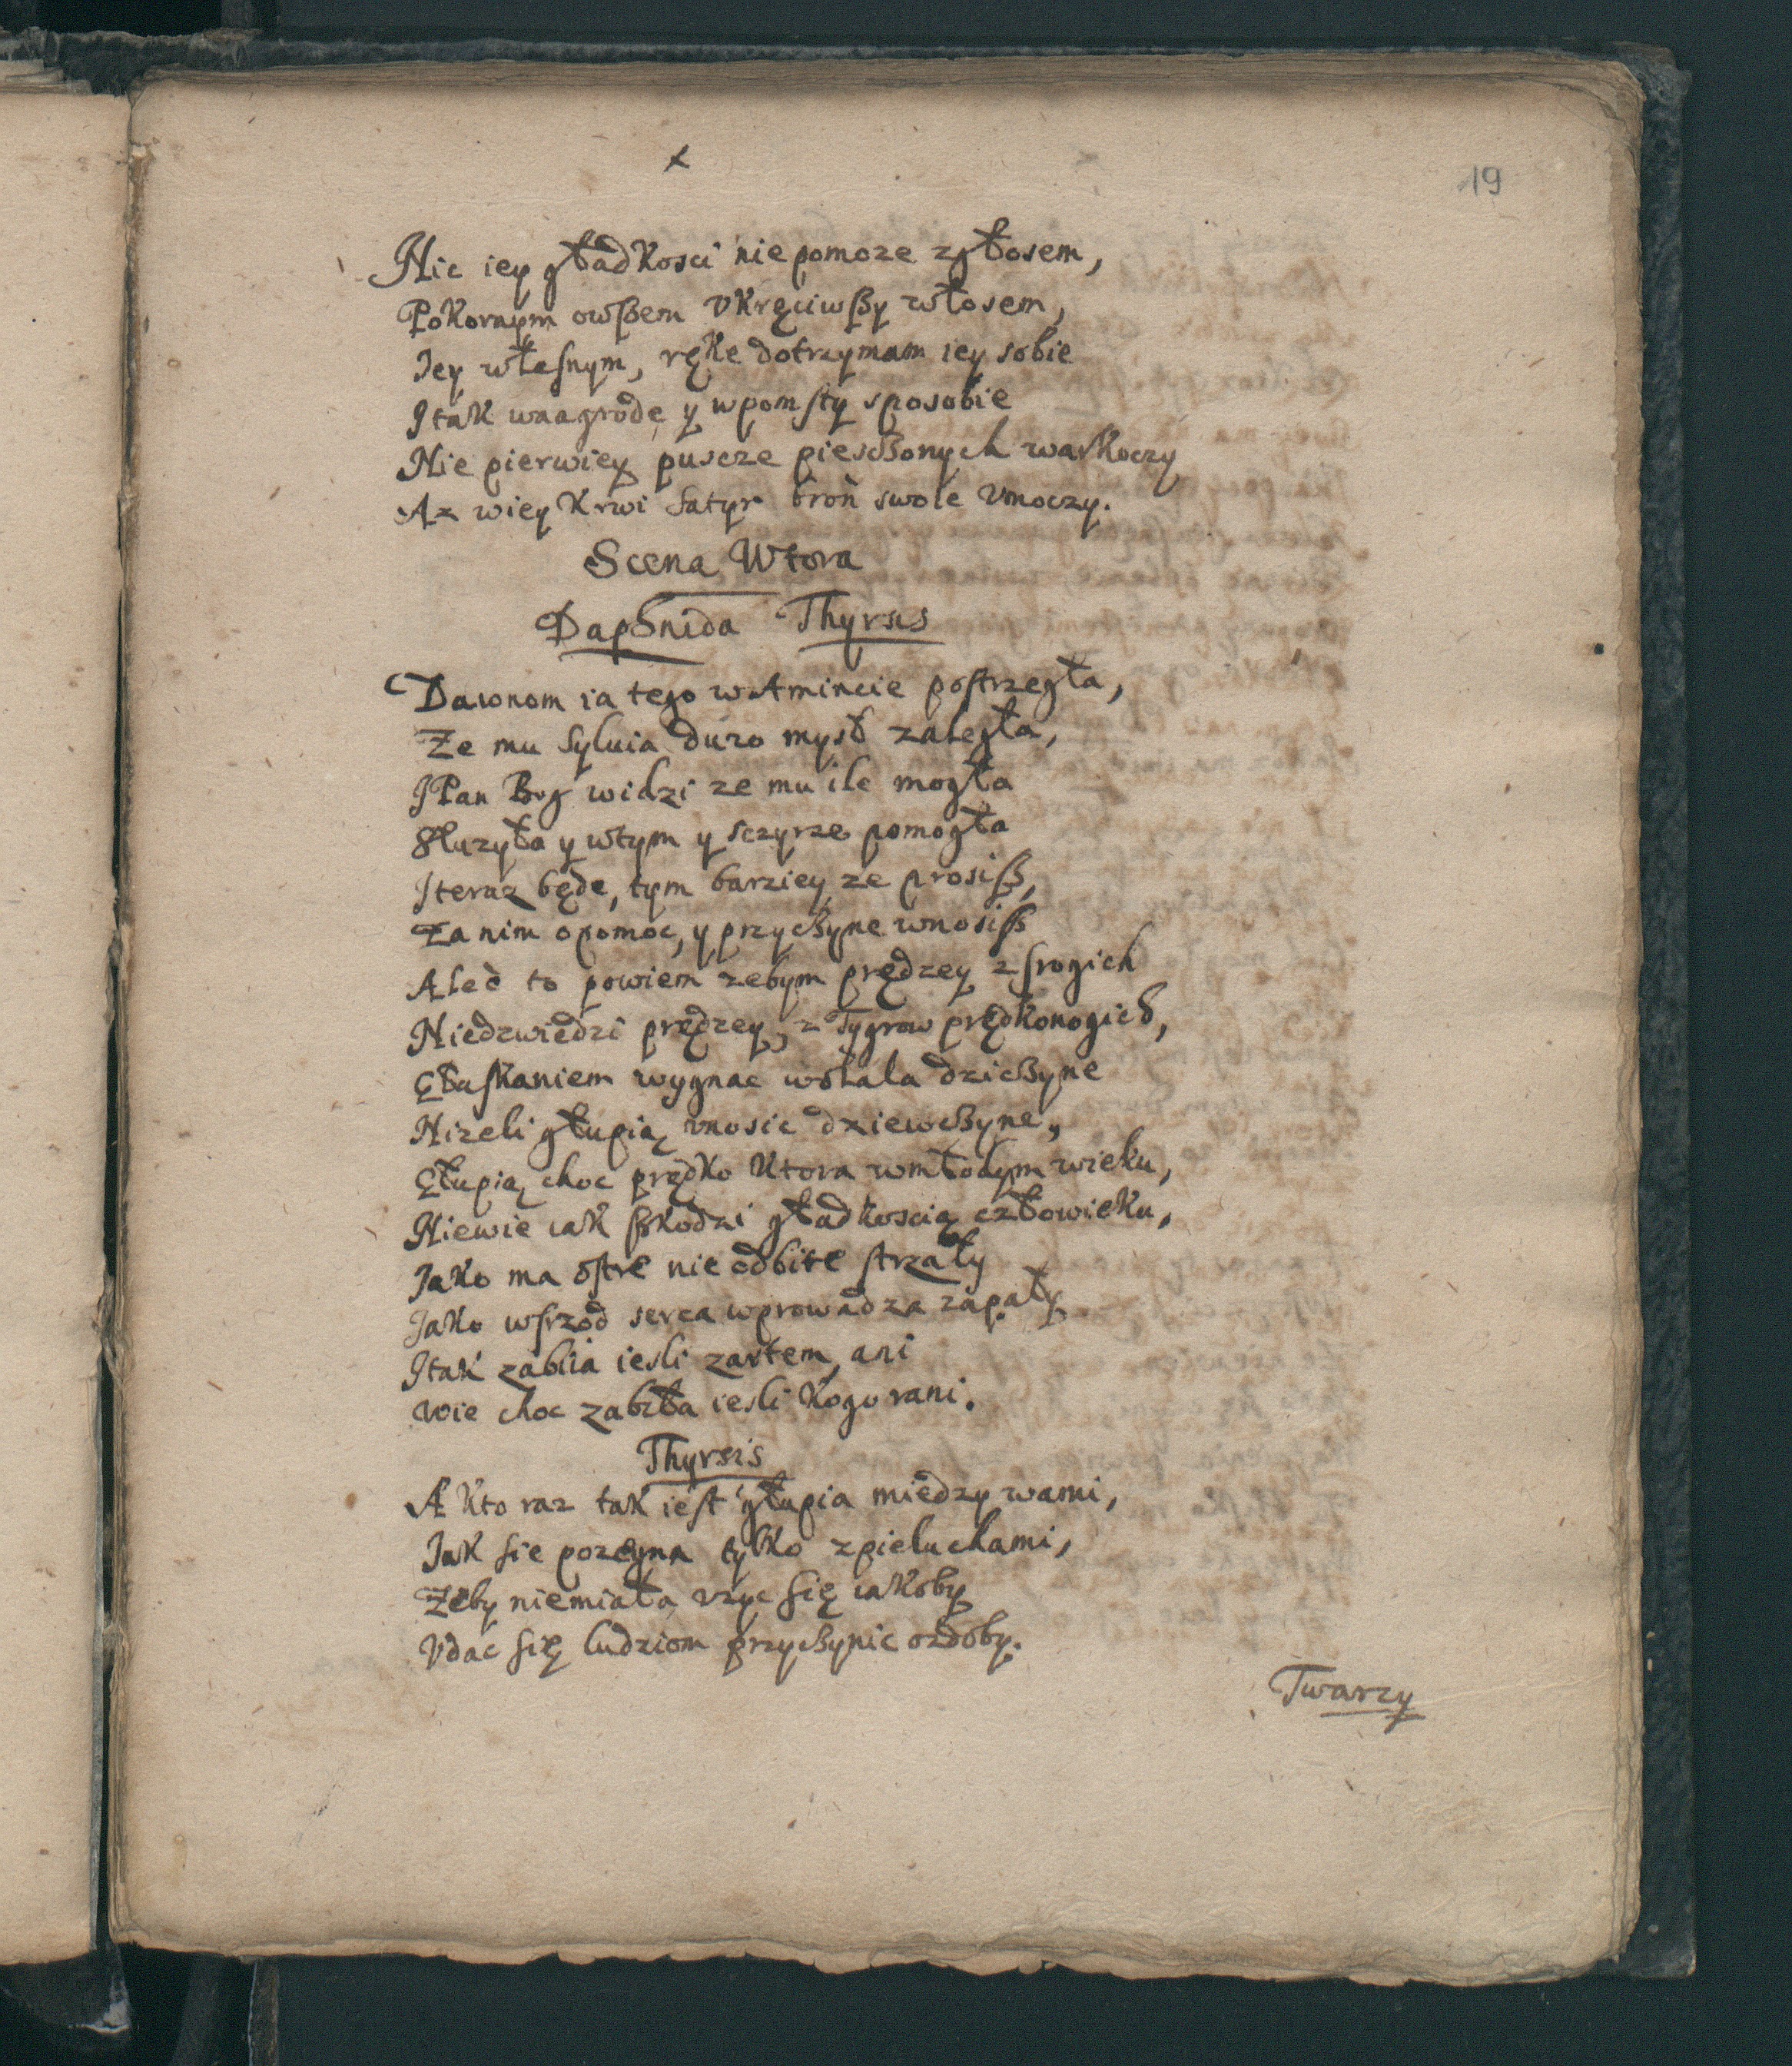 x
19
Nic iey gładkosci nie pomoze zgłosem,
Pokornym owßem Vkręciwßy włosem,
Iey własnym, rękę dotrzymam iey sobie
I tak wnagrodę y wpomsty sposobie
Nie pierwiey puscze piesczonych warkoczy
Az wiey Krwi Satyr broń swoie Vmoczy.
Scena Wtora
Daphnida Thyrsis
Dawnom ia tego wAmincie postrzegła,
Ze mu Syluia duzo mysl zaległa,
I Pan Bog widzi ze mu ile mogła
Słuzyła y wtym y sczyrze pomogła
I teraz będę, tym barziey ze prosiß,
Za nim o pomoc, y przyczynę wnosiß
Aleć to powiem zebym prędzey z srogich
Niedzwiedzi prędzey, z Tygrow prędkonogich,
Głaskaniem wygnac wolała dziczynę
Nizeli głupią vnosic dziewczynę,
Głupią choc prędko Ktora wmłodym wieku,
Niewie iak ßkodzi gładkoscią człowieku,
Iako ma ostre nie odbite strzały
Iako wsrzod serca wprowadza zapały
I tak zabiia iesli zartem, ani
Wie choc zabiła iesli Kogo rani.
Thyrsis
A Kto raz tak iest głupia miedzy wami,
Iak sie poczyna tylko zpieluchami,
Zeby niemiała vzyc się iakoby
Vdac się ludziom przyczynic ozdoby.
Twarzy